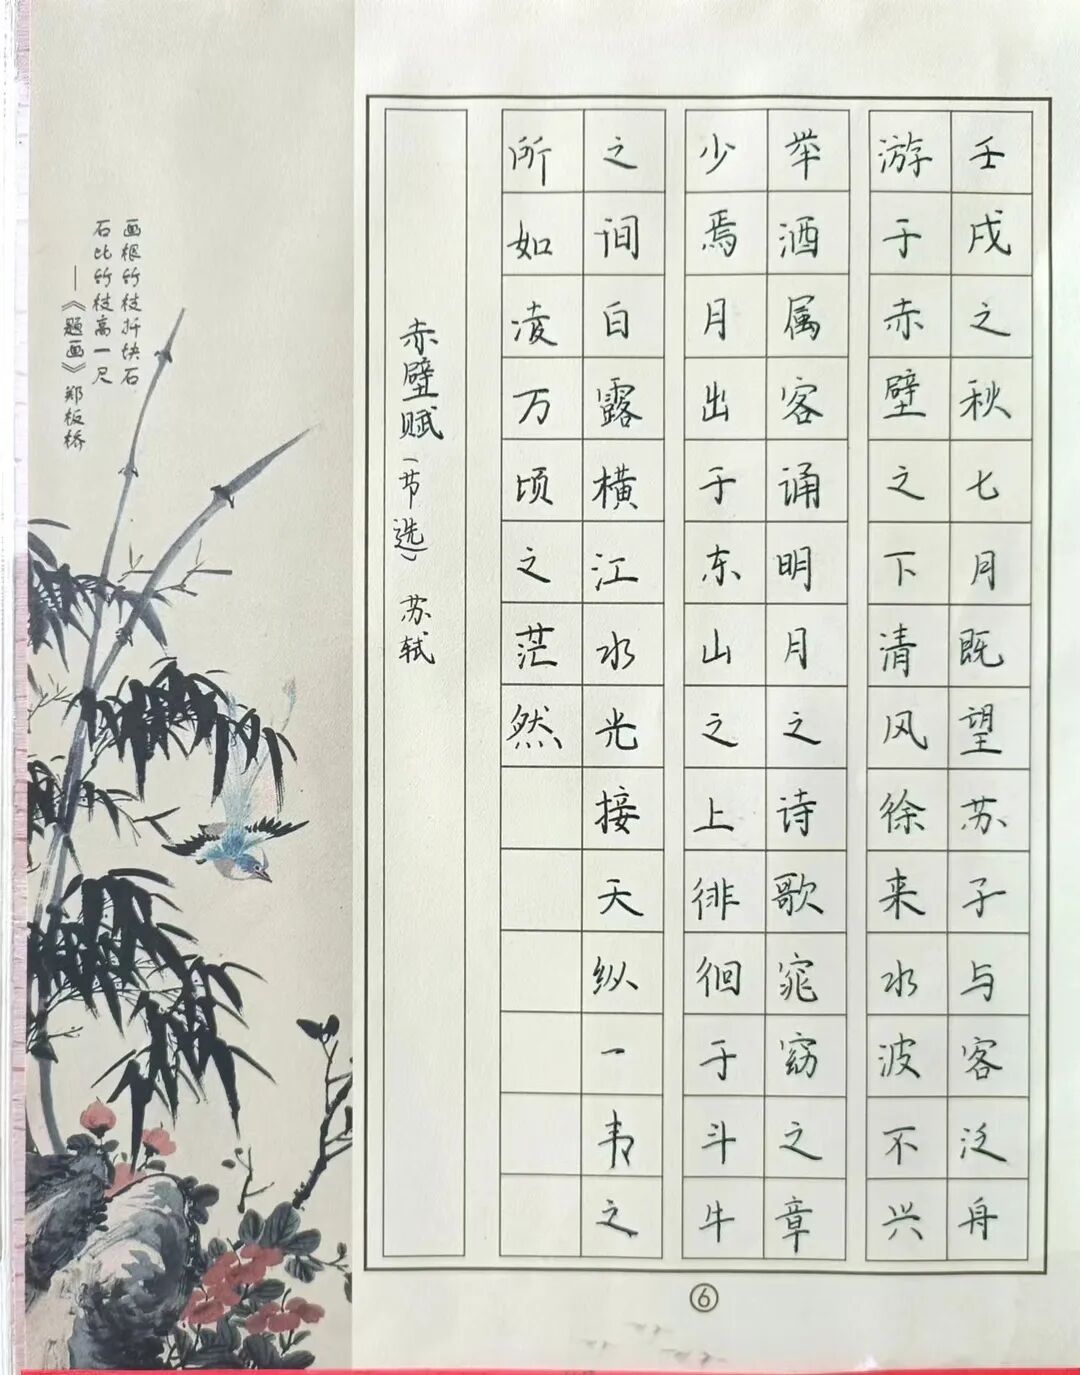 壬戌之秋七月既望苏子与客泛舟
游于赤壁之下清风徐来水波不兴
举酒属客诵明月之诗歌窈窕之章
少焉月出于东山之上徘徊于斗牛
之间白露横江水光接天纵一苇之
所如凌万顷之茫然
赤壁赋（节选）苏轼
画根竹枝扦块石
石比竹枝高一尺
——《题画》郑板桥
⑥